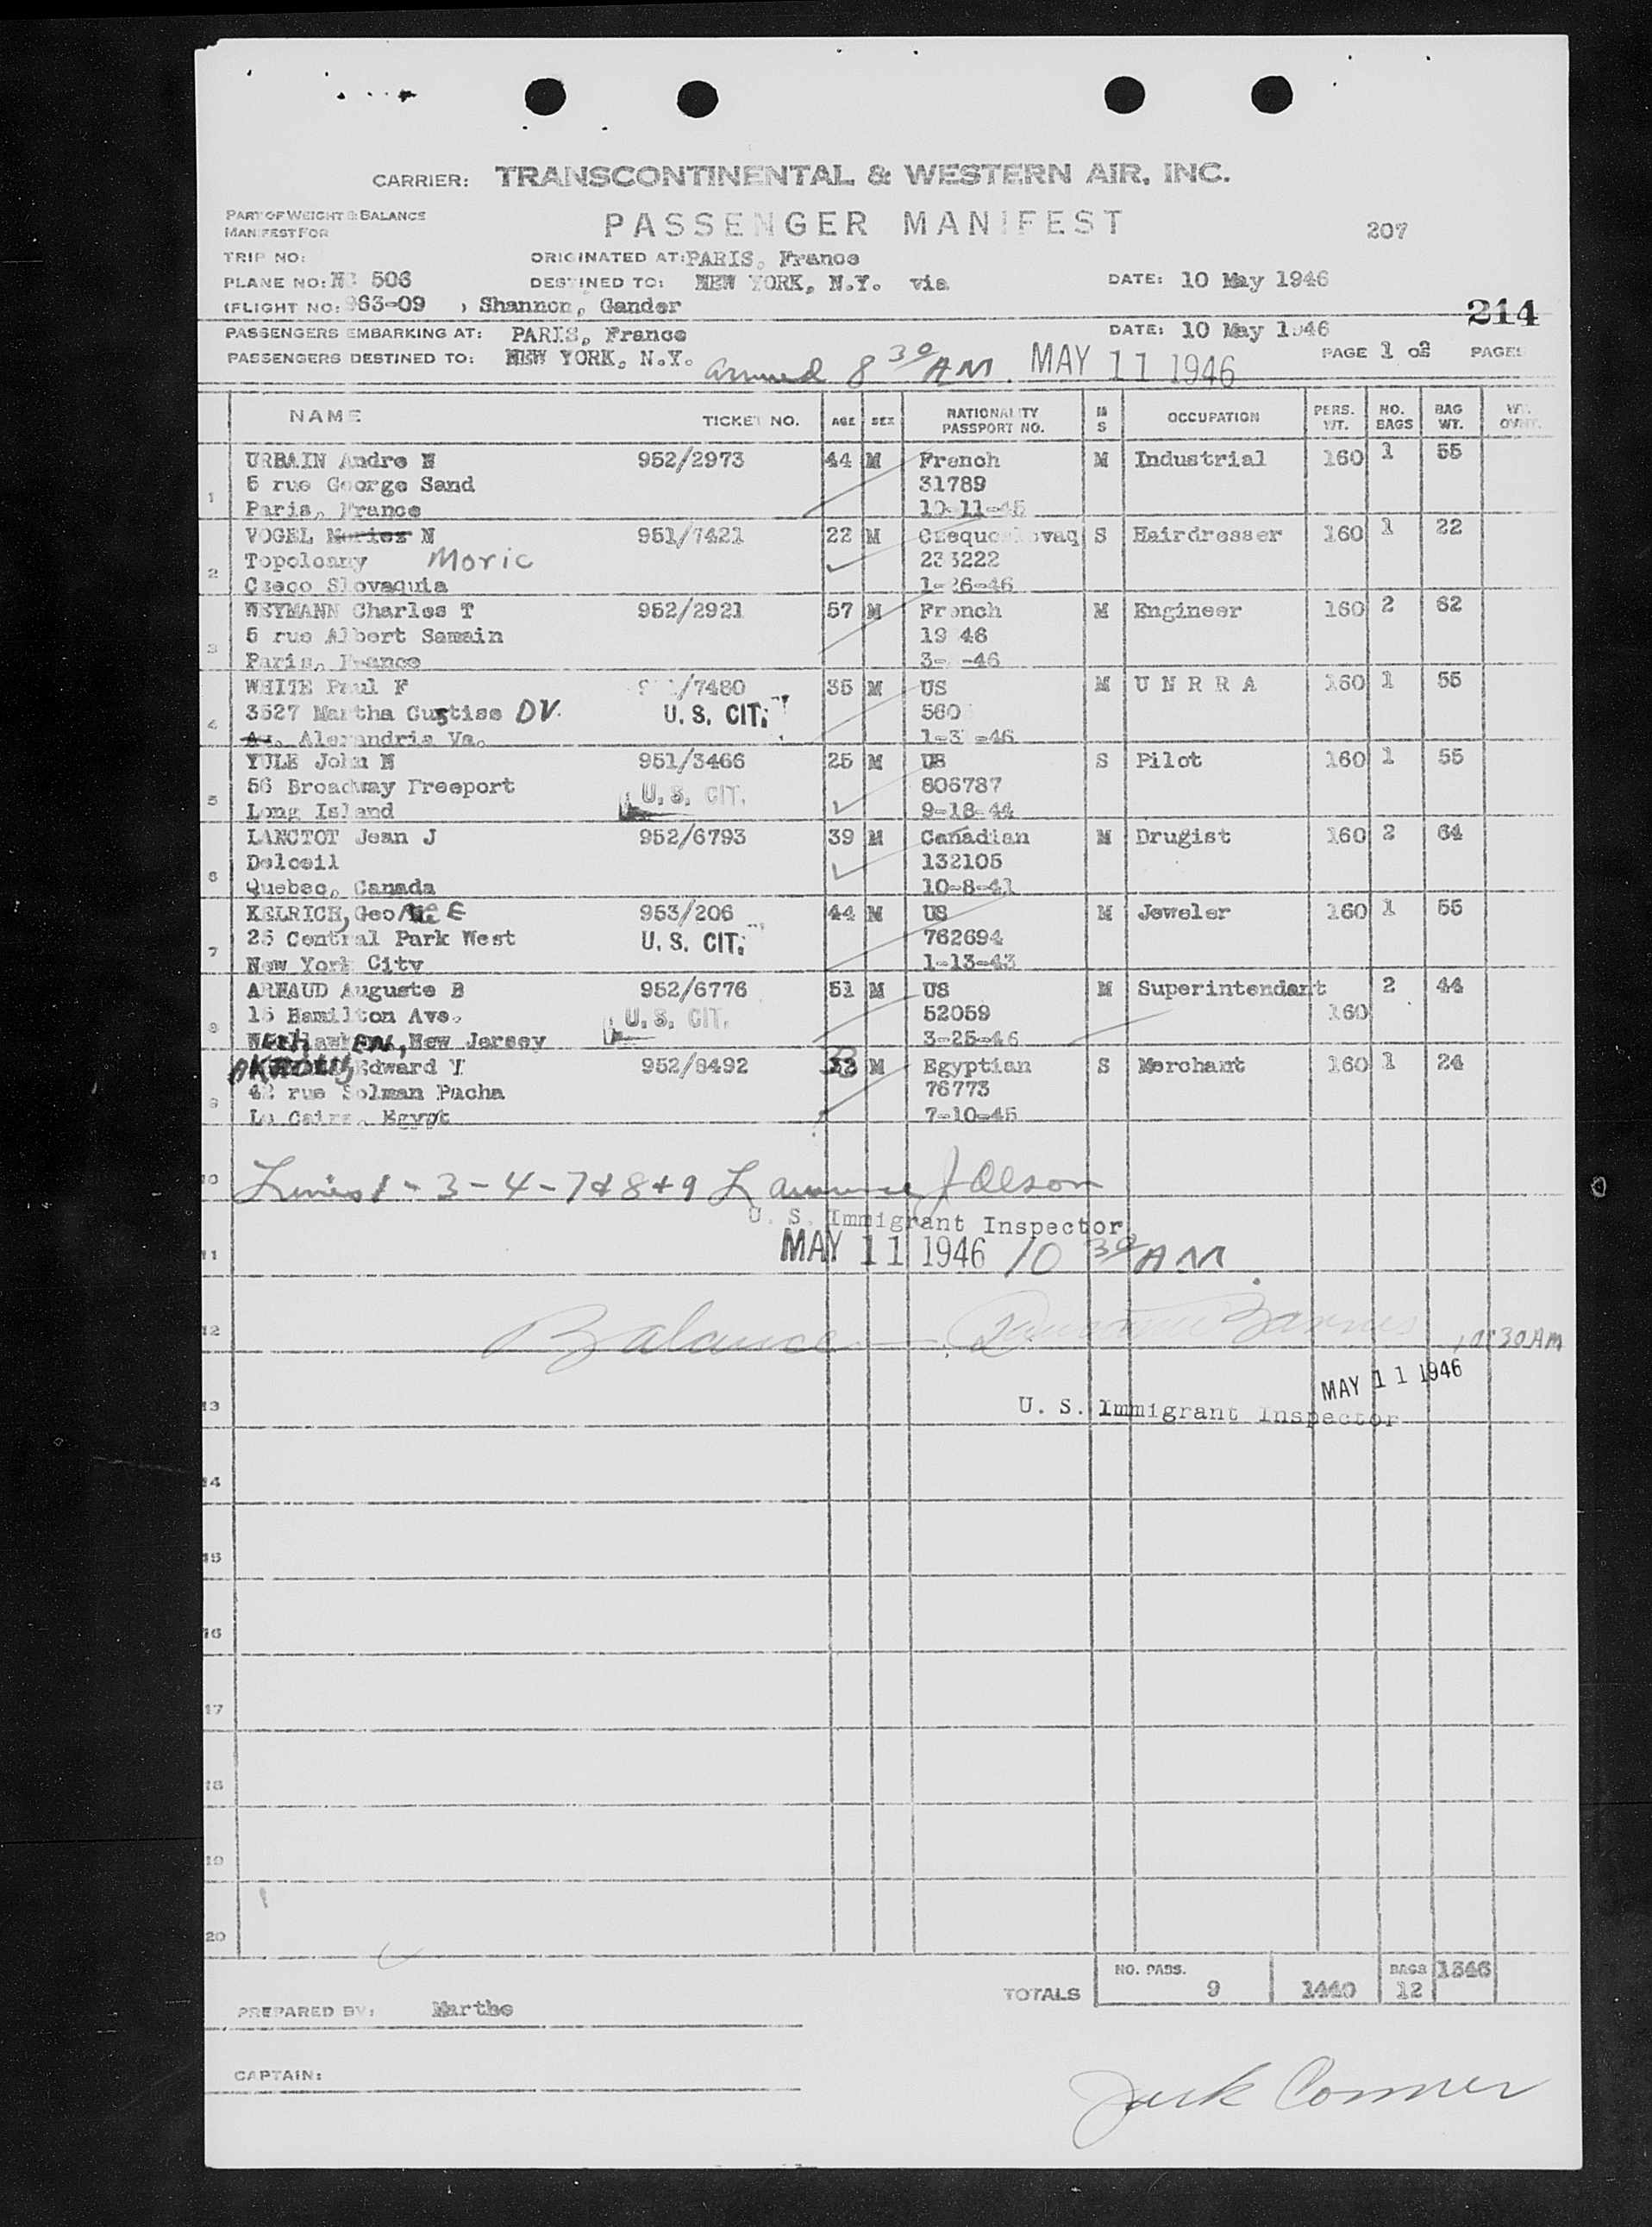 CARRIER: TRANSCONTINENTAL & WESTERN AIR, INC.
PART OF WEIGHT & BALANCE
MANIFEST FOR
PASSENGER MANIFEST
207
TRIP NO:
ORIGINATED AT: PARIS, France
PLANE NO: NC 506
DESTINED TO: NEW YORK, N.Y. via
DATE: 10 May 1946
(FLIGHT NO: 963-09 , Shannon, Gander
214
PASSENGERS EMBARKING AT: PARIS, France
DATE: 10 May 1946
PASSENGERS DESTINED TO: NEW YORK, N.Y.
arrived 8 30 AM. MAY 11 1946
PAGE 1 of PAGES
NAME TICKET NO. AGE SEX NATIONALITY PASSPORT NO. M S OCCUPATION PERS. WT. NO. BAGS BAG WT. WT. OVWT.
URBAIN Andre N 952/2973 44 M French M Industrial 160 1 55
5 rue George Sand 31789
1 Paris, France 10-11-45
VOGEL N 951/7421 22 M S Hairdresser 160 1 22
Topolcany Moric
2 Czeco Slovaquia 1-26-46
WEYMANN Charles T 952/2921 57 M French M Engineer 160 2 62
5 rue Albert Samain 19 46
3 Paris, France 3- -46
WHITE Paul F /7480 35 M US M U N R R A 160 1 55
3527 Martha Custiss DV. U. S. CIT. 560
4 Av. Alexandria Va. 1-3 -46
YULE John N 951/3466 25 M US S Pilot 160 1 55
56 Broadway Freeport U. S. CIT. 806787
5 Long Island 9-18-44
LANCTOT Jean J 952/6793 39 M Canadian M Drugist 160 2 64
Beloeil 132105
6 Quebec, Canada 10-8-41
KELRICH, George E 953/206 44 M US M Jeweler 160 1 55
25 Central Park West U. S. CIT. 762694
7 New York City 1-13-43
ARNAUD Auguste B 952/6776 51 M US M Superintendant 2 44
15 Hamilton Ave. U. S. CIT. 52059 160
8 New Jersey 3-25-46
Edward Y 952/8492 33 M Egyptian S Merchant 160 1 24
42 rue Solman Pacha 76773
9 Le Caire, Egypt 7-10-45
10 Lines 1 - 3 - 4 - 7 & 8 + 9 Lawrence J Olson
U. S. Immigrant Inspector
11 MAY 11 1946 10 30 AM
12 Balance 10:30 AM
MAY 11 1946
13 U. S. Immigrant Inspector
14
15
16
17
18
19
20
TOTALS NO. PASS. 9 1440 BAGS 12 1346
PREPARED BY: Marthe
CAPTAIN:
Jack Conner